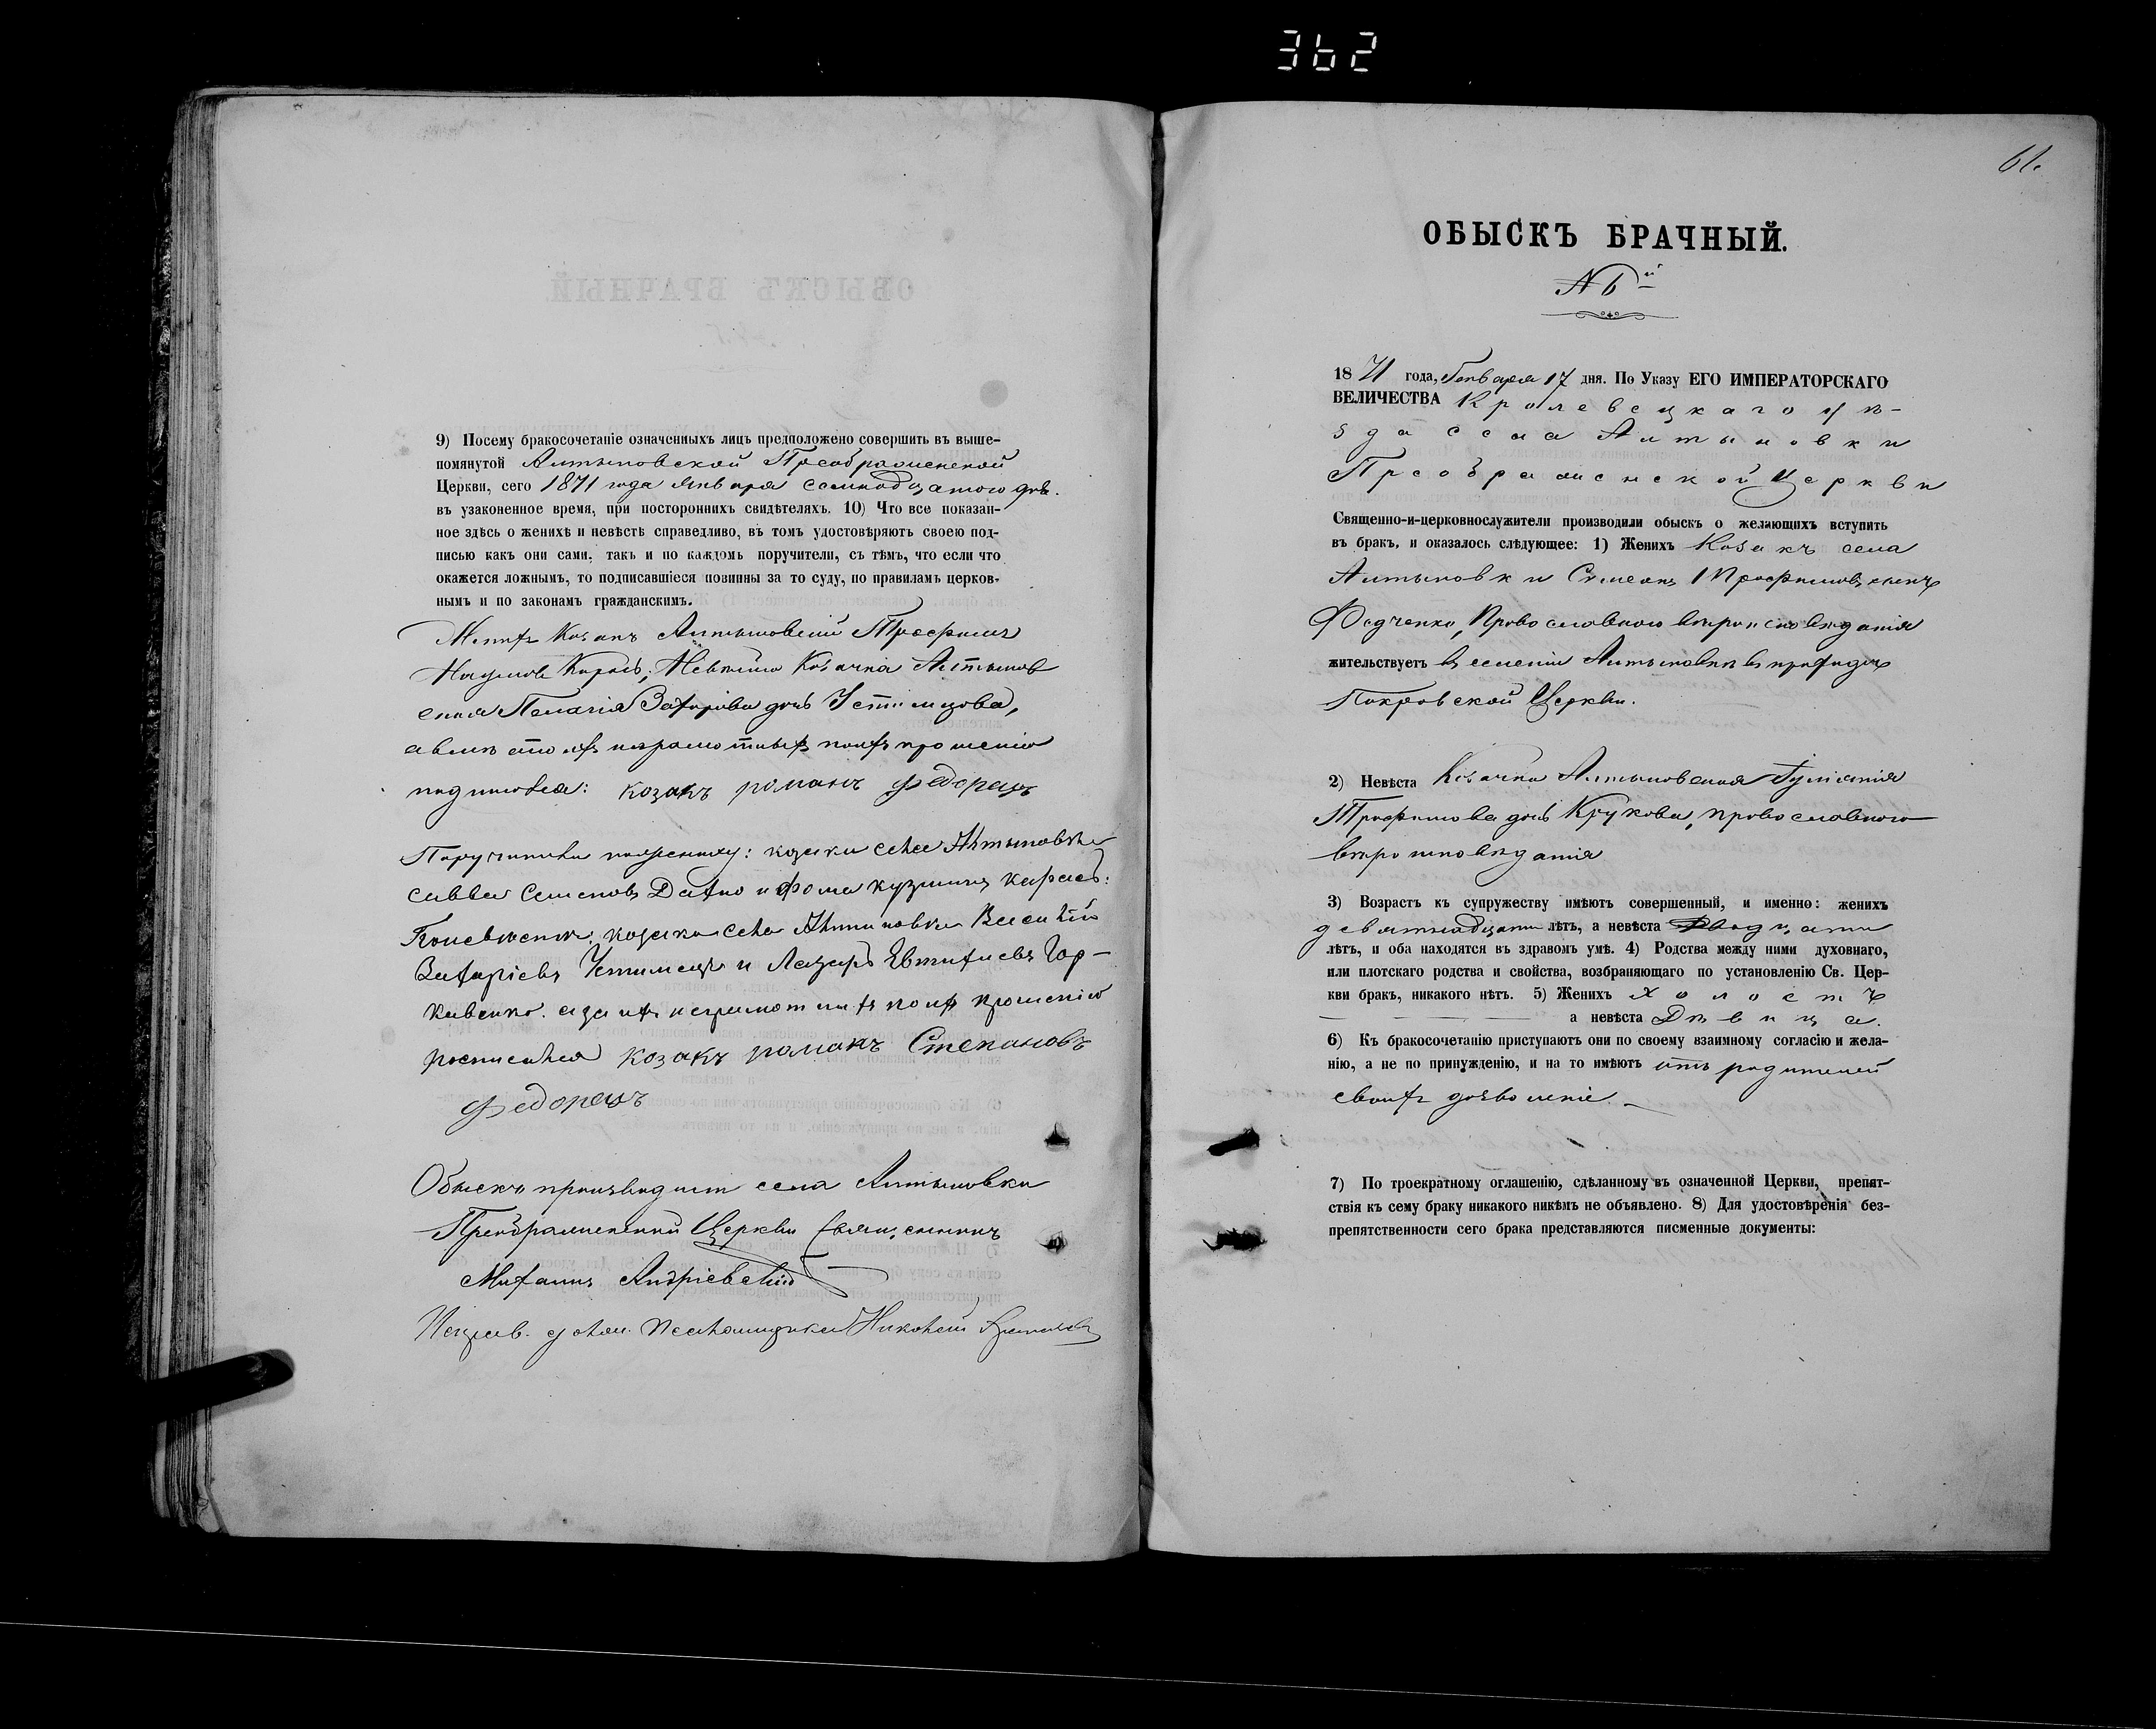 362
9) Посему бракосочетаніе означенныхъ лицъ предположено совершить въ выше-
помянутой Алтыновской Преображенской
Церкви, сего 1871 года Января семнадцатого дня.
въ узаконенное время, при постороннихъ свидѣтеляхъ. 10) Что все показан-
ное здѣсь о женихѣ и невѣстѣ справедливо, въ томъ удостовѣряютъ своею под-
писью какъ они сами, такъ и по каждомъ поручители, съ тѣмъ, что если что
окажется ложнымъ, то подписавшіеся повинны за то суду, по правиламъ церков-
нымъ и по законамъ гражданскимъ.
Женихъ Козакъ Алтыновскій Трофимъ
Наумовъ Карась; Невѣста Козачка Алтынов
ская Пелагія Захарова дочь Устимцова,
а вместо ихъ неграмотныхъ по ихъ прошенію
подписался: козакъ романъ Федорецъ
Поручители по женихѣ: козаки села Алтыновки
Савва Семеновъ Дахно и Фома Кузминъ Карась:
По невѣстѣ: козаки села Алтыновки Василій
Захаріевъ Устимецъ и Лазарь Евтихіевъ Гор-
кавенко. а за ихъ неграмотныхъ по ихъ прошенію
росписался козакъ романъ Степановъ
Федорецъ
Обыскъ производилъ села Алтыновки
Преображенской Церкви Священникъ
Михаилъ Андріевскій
Исправ. должн. Псаломщика Николай
61.
ОБЫСКЪ БРАЧНЫЙ.
№ 6й
1871 года, Генваря 17 дня. По Указу ЕГО ИМПЕРАТОРСКАГО
ВЕЛИЧЕСТВА Кролевецкаго уѣ-
зда села Алтыновки
Преображенской Церкви
Священно-и-церковнослужители производили обыскъ о желающихъ вступить
въ бракъ, и оказалось слѣдующее: 1) Женихъ Козакъ села
Алтыновки Симеонъ Трофимовъ сынъ
Федченко, Православного вѣроисповѣданія
жительствуетъ въ селеніи Алтыновки въ приходѣ
Покровской Церкви.
2) Невѣста Козачка Алтыновская Іулианія
Трофимова дочь Крукова, православного
вѣроисповѣданія
3) Возрастъ къ супружеству имѣютъ совершенный, и именно: женихъ
девятнадцати лѣтъ, а невѣста двадцати
лѣтъ, и оба находятся въ здравомъ умѣ. 4) Родства между ними духовнаго,
или плотскаго родства и свойства, возбраняющаго по установленію Св. Цер-
кви бракъ, никакого нѣтъ. 5) Женихъ холостъ
а невѣста Дѣвица.
6) Къ бракосочетанію приступаютъ они по своему взаимному согласію и жела-
нію, а не по принужденію, и на то имѣютъ отъ родителей
своихъ дозволеніе.
7) По троекратному оглашенію, сдѣланному въ означенной Церкви, препят-
ствія къ сему браку никакого никѣмъ не объявлено. 8) Для удостовѣренія без-
препятственности сего брака представляются писменные документы: